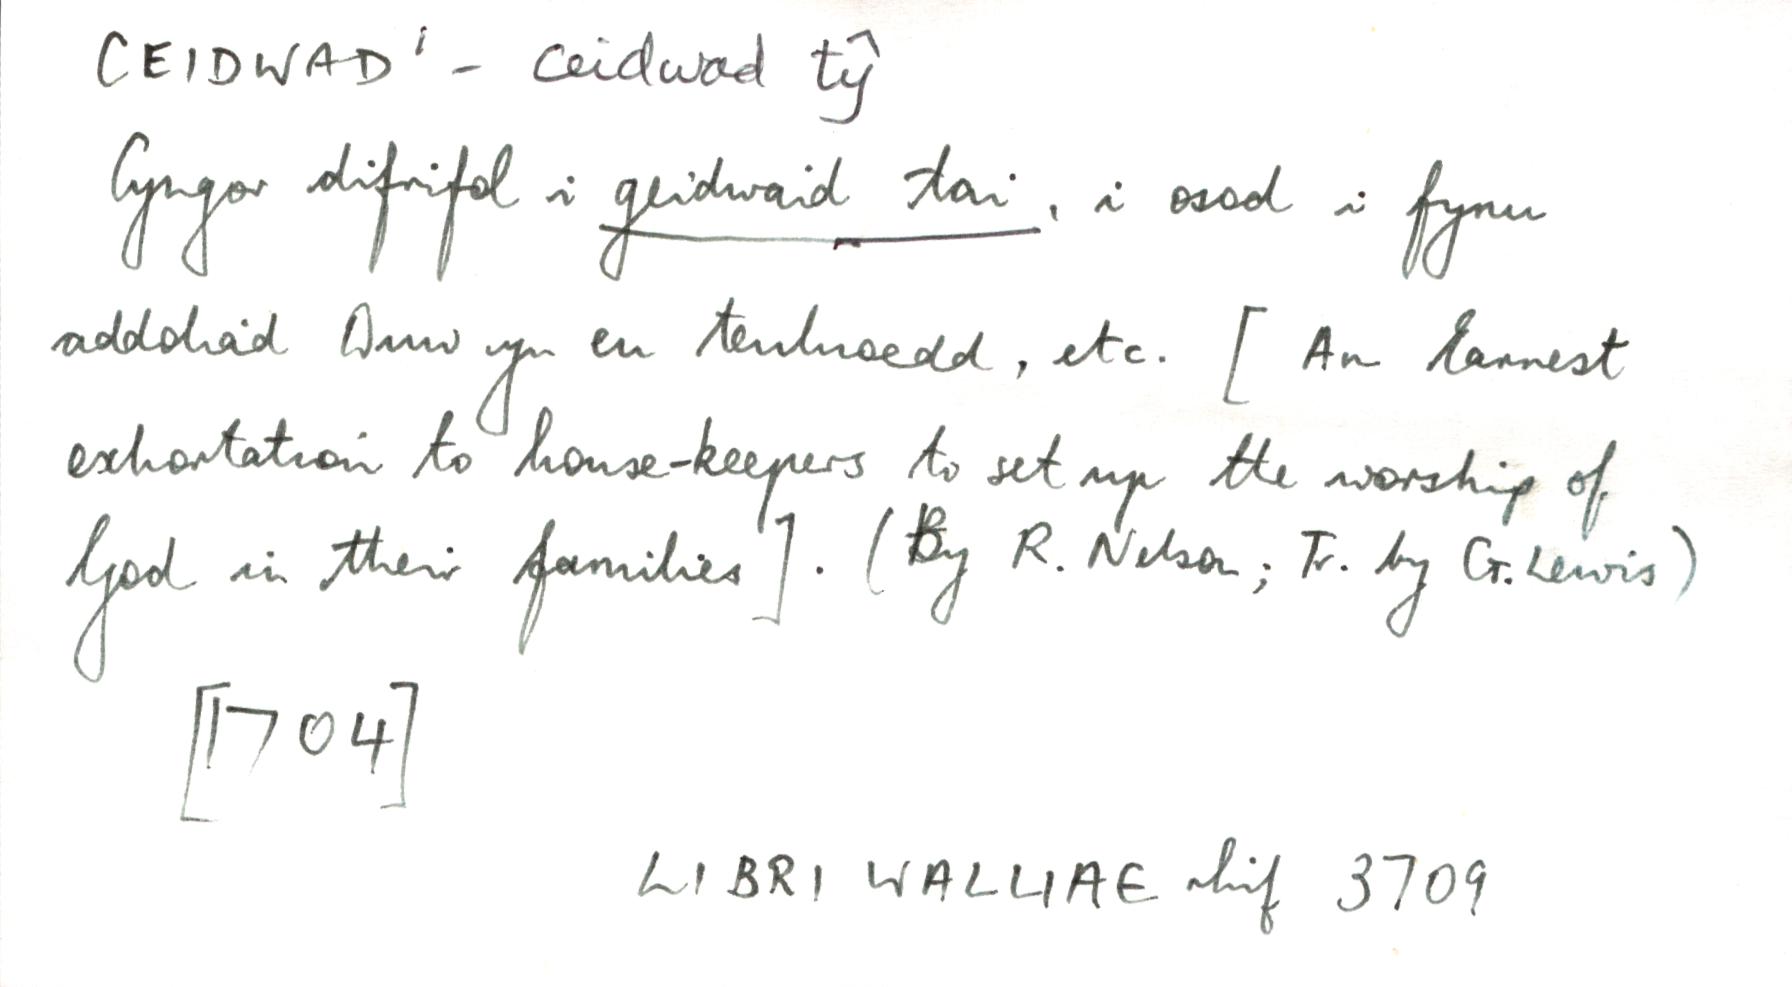 CEIDWAD¹ - ceidwad tŷ
Cyngor difrifol i geidwaid tai, i osod i fynu
addoliad Duw yn eu teuluoedd, etc. [An Earnest
exhortation to house-keepers to set up the worship of
God in their families]. (By R. Nelson; Tr. by G. Lewis)
[1704]
LIBRI WALLIAE rhif 3709